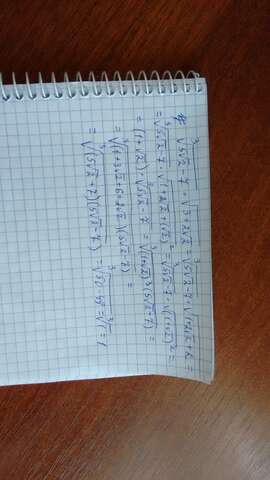 ∛(5√2 - 7) · √(3+2√2) = ∛(5√2 - 7) · √(1+2√2+2) =
= ∛(5√2 - 7) · √(1+2√2+(√2)²) = ∛(5√2 - 7) · √(1+√2)² =
= (1+√2) · ∛(5√2 - 7) = ∛((1+√2)³(5√2 - 7)) =
= ∛((1+3√2+6+2√2)(5√2 - 7)) =
= ∛((5√2 + 7)(5√2 - 7)) = ∛(50 - 49) = ∛1 = 1